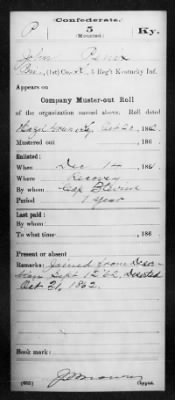 Confederate.
P 5 Ky.
(Mounted.)
John
(1st) Co. 5 Reg't Kentucky Inf.
Appears on
Company Muster-out Roll
of the organization named above. Roll dated
Oct 20, 1862.
Mustered out 186
Enlisted:
When Dec 1 1861
Where
By whom Cap
Period 1 year
Last paid:
By whom
To what time 186
Present or absent
Remarks: Joined from Deser-
tion Sept 12 62, Deserted
Oct 21, 1862.
Book mark:
Copyist.